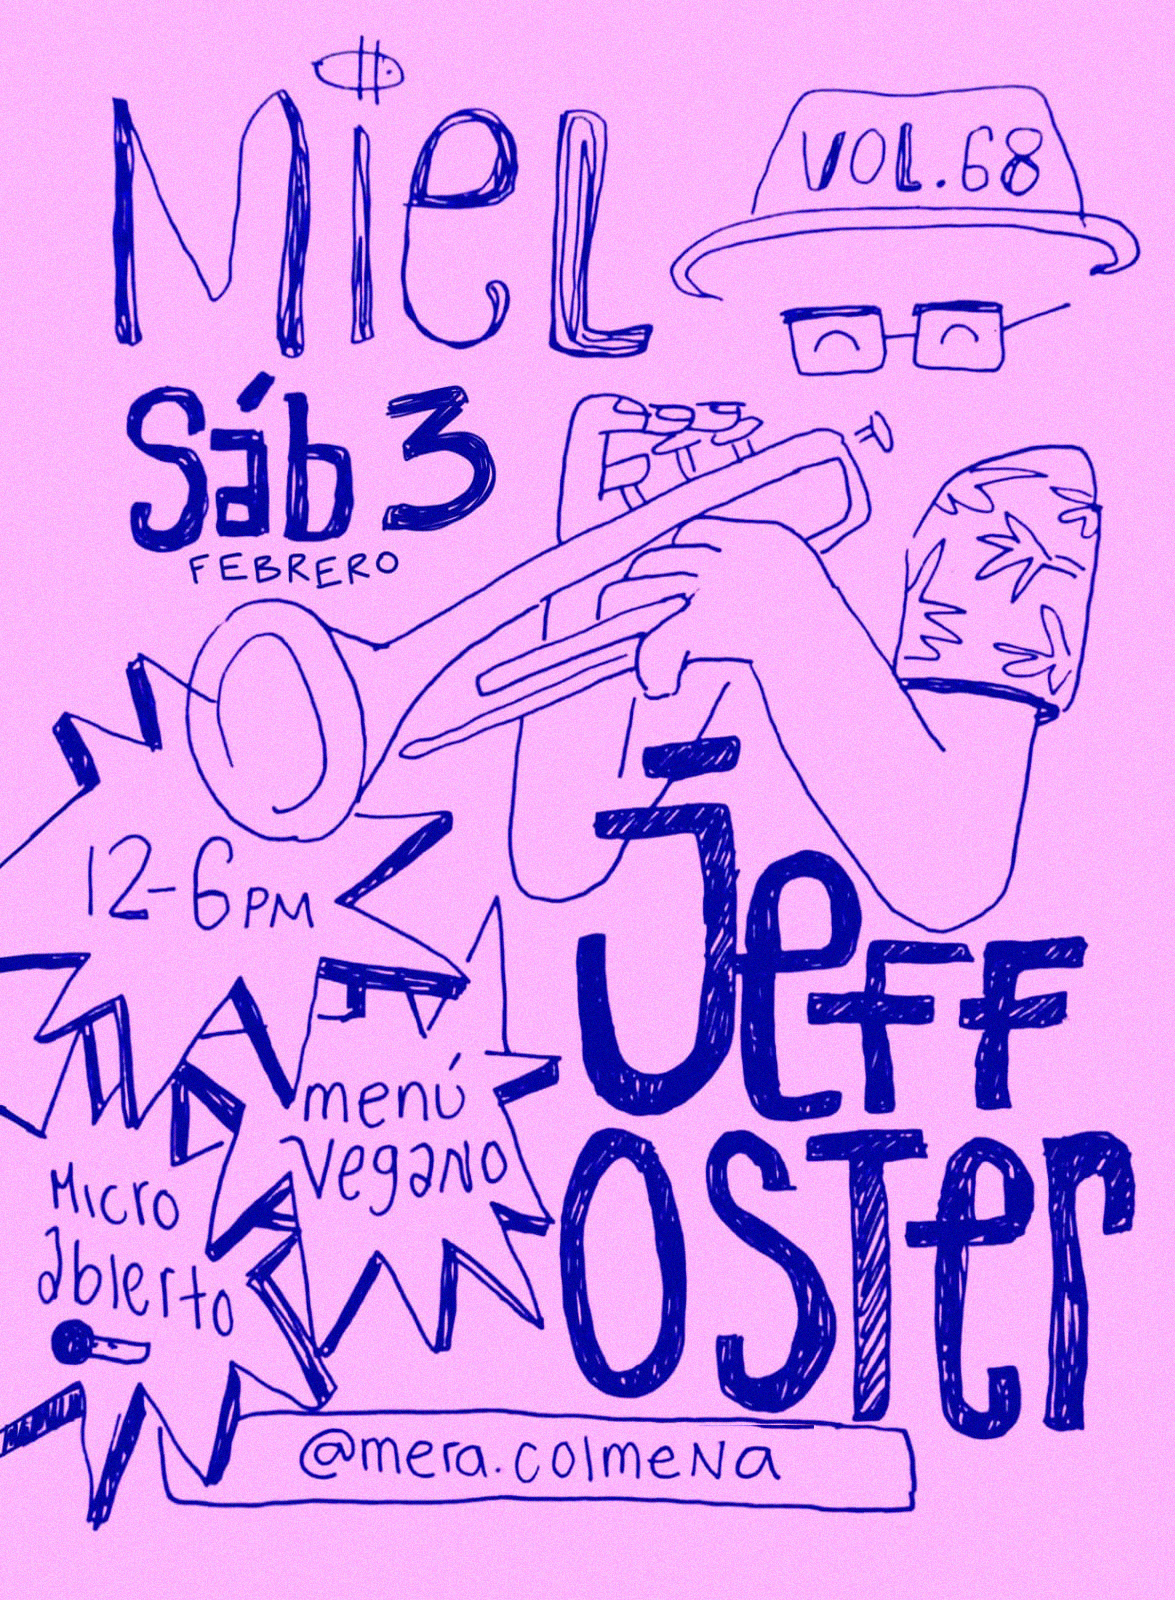 Miel
VOL. 68
Sáb 3
FEBRERO
12-6 PM
menú
vegano
Micro
abierto
Jeff
Oster
@mera.colmena